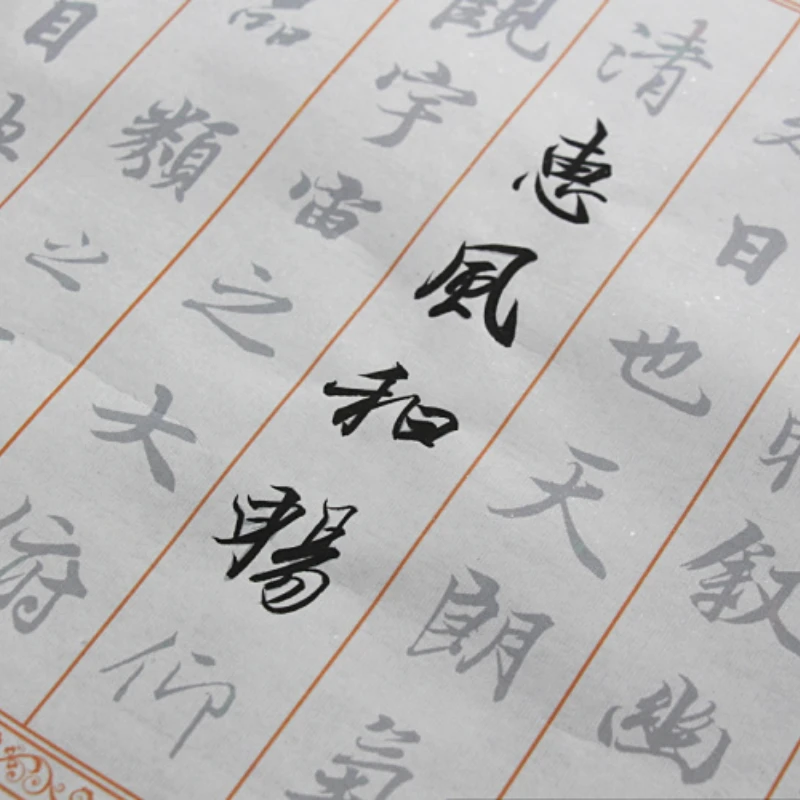 敘幽
日也天朗氣
清惠風和暢仰
觀宇宙之大俯
品類之
目